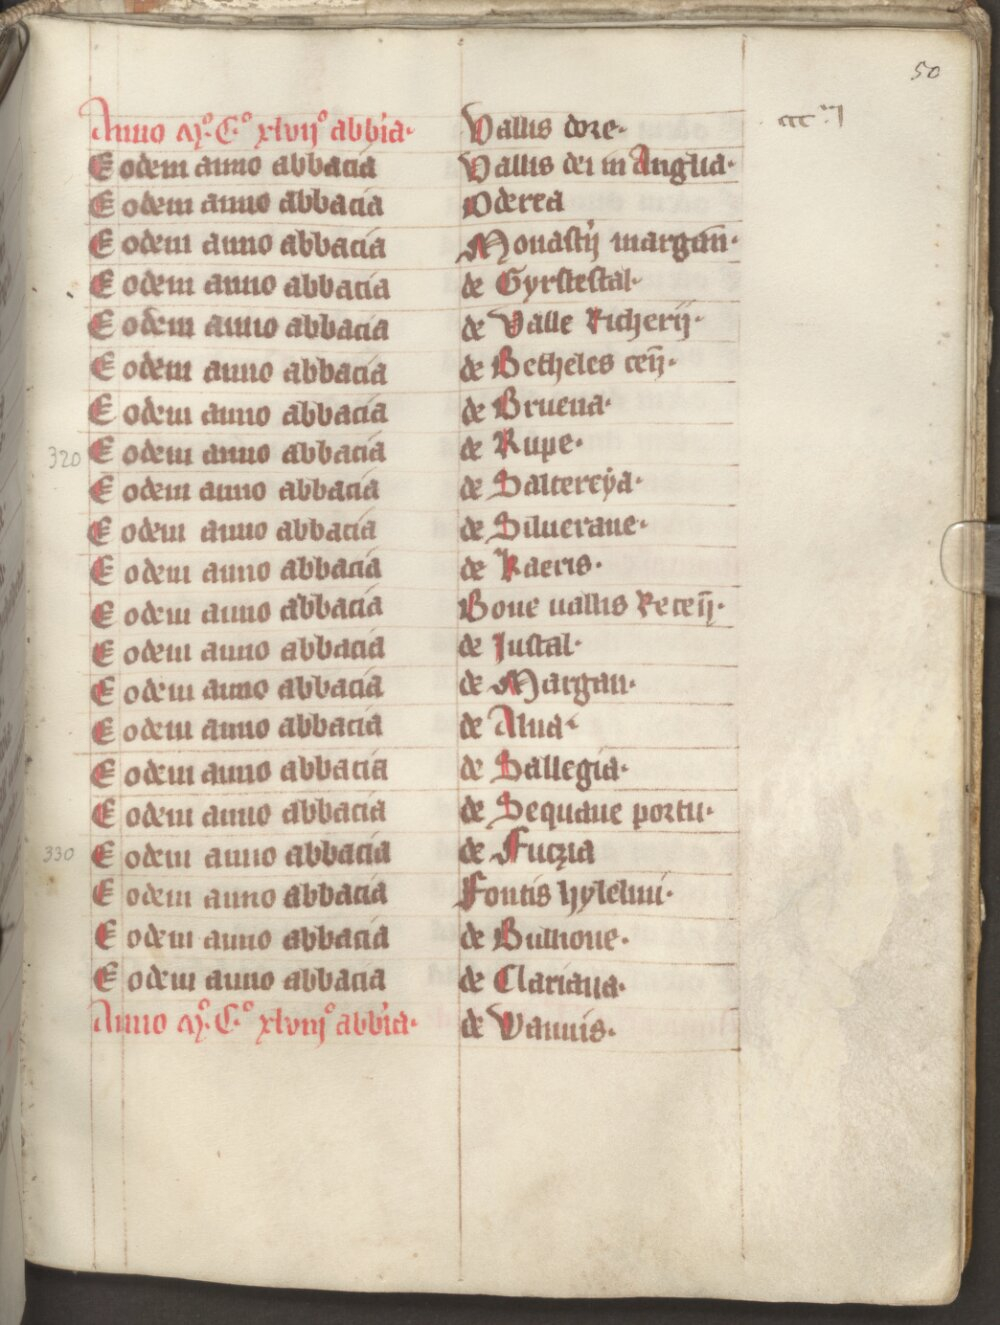 50
Anno Mº. Cº. xlvijº abb'ia. Vallis doze.
Eodem anno abbacia Vallis dei in Anglia.
Eodem anno abbacia Oderea
Eodem anno abbacia Monastij margan̄.
Eodem anno abbacia de Gyrstestal.
Eodem anno abbacia de Valle Richerij.
Eodem anno abbacia de Betheles ceij̄.
Eodem anno abbacia de Bruena.
320 Eodem anno abbacia de Rupe.
Eodem anno abbacia de Saltereya.
Eodem anno abbacia de Siluerane.
Eodem anno abbacia de Raeris.
Eodem anno abbacia Bone uallis Receij̄.
Eodem anno abbacia de Iustal.
Eodem anno abbacia de Margan.
Eodem anno abbacia de Alna.
Eodem anno abbacia de Sallegia.
Eodem anno abbacia de Sequane portu.
330 Eodem anno abbacia de Fuczia
Eodem anno abbacia Fontis hylelmi.
Eodem anno abbacia de Bullione.
Eodem anno abbacia de Clariana.
Anno Mº. Cº. xlviijº abb'ia. de Vannis.